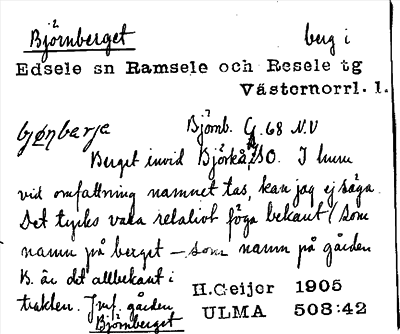 Björnberget berg i
Edsele sn Ramsele och Resele tg
Västernorrl. l.
bjǿnbarje Björnb. G.68 N.V
Berget invid Björkå, SO. I huru
vid omfattning namnet tas, kan jag ej säga.
Det tycks vara relativt föga bekant (som
namn på berget – som namn på gården
B. är det allbekant i
trakten. Jmf. gården H.Geijer 1905
Björnberget ULMA 508:42